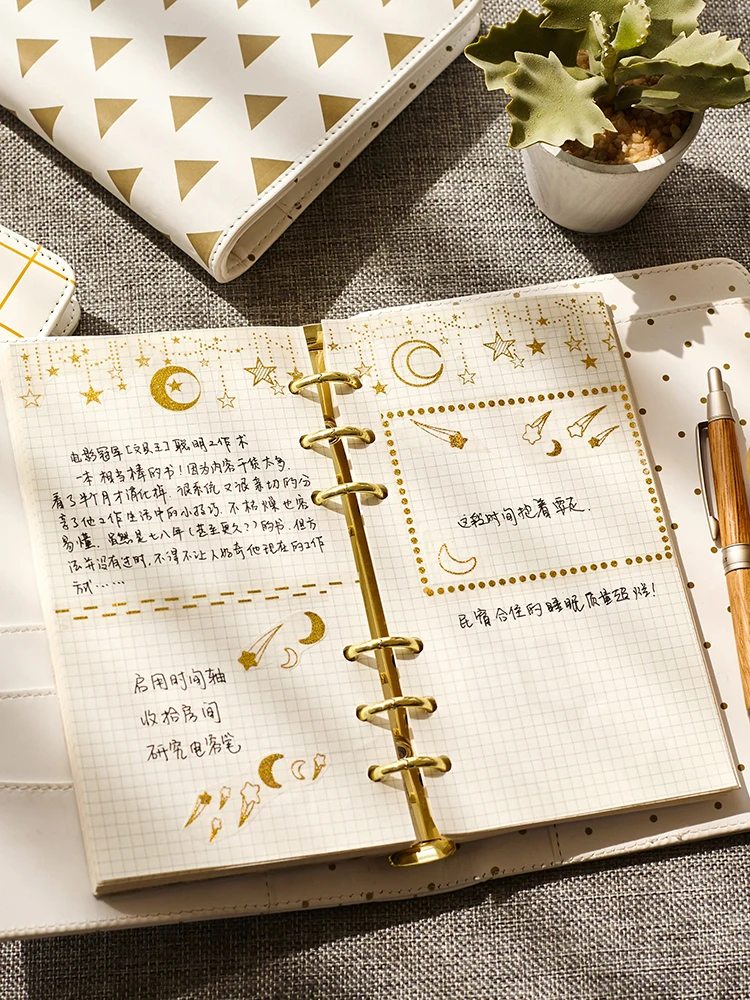 电影冠军[文具王]聪明工作术
一本相当棒的书！因为内容干货太多，
看了半个月才消化掉。很系统又很亲切的分
享了他工作生活中的小技巧，不枯燥也容
易懂。虽然是七八年(甚至更久？)的书，但方
法并没有过时，不得不让人好奇他现在的工作
方式……
启用时间轴
收拾房间
研究电容笔
这段时间抱着
民宿合住的睡眠质量超烂！